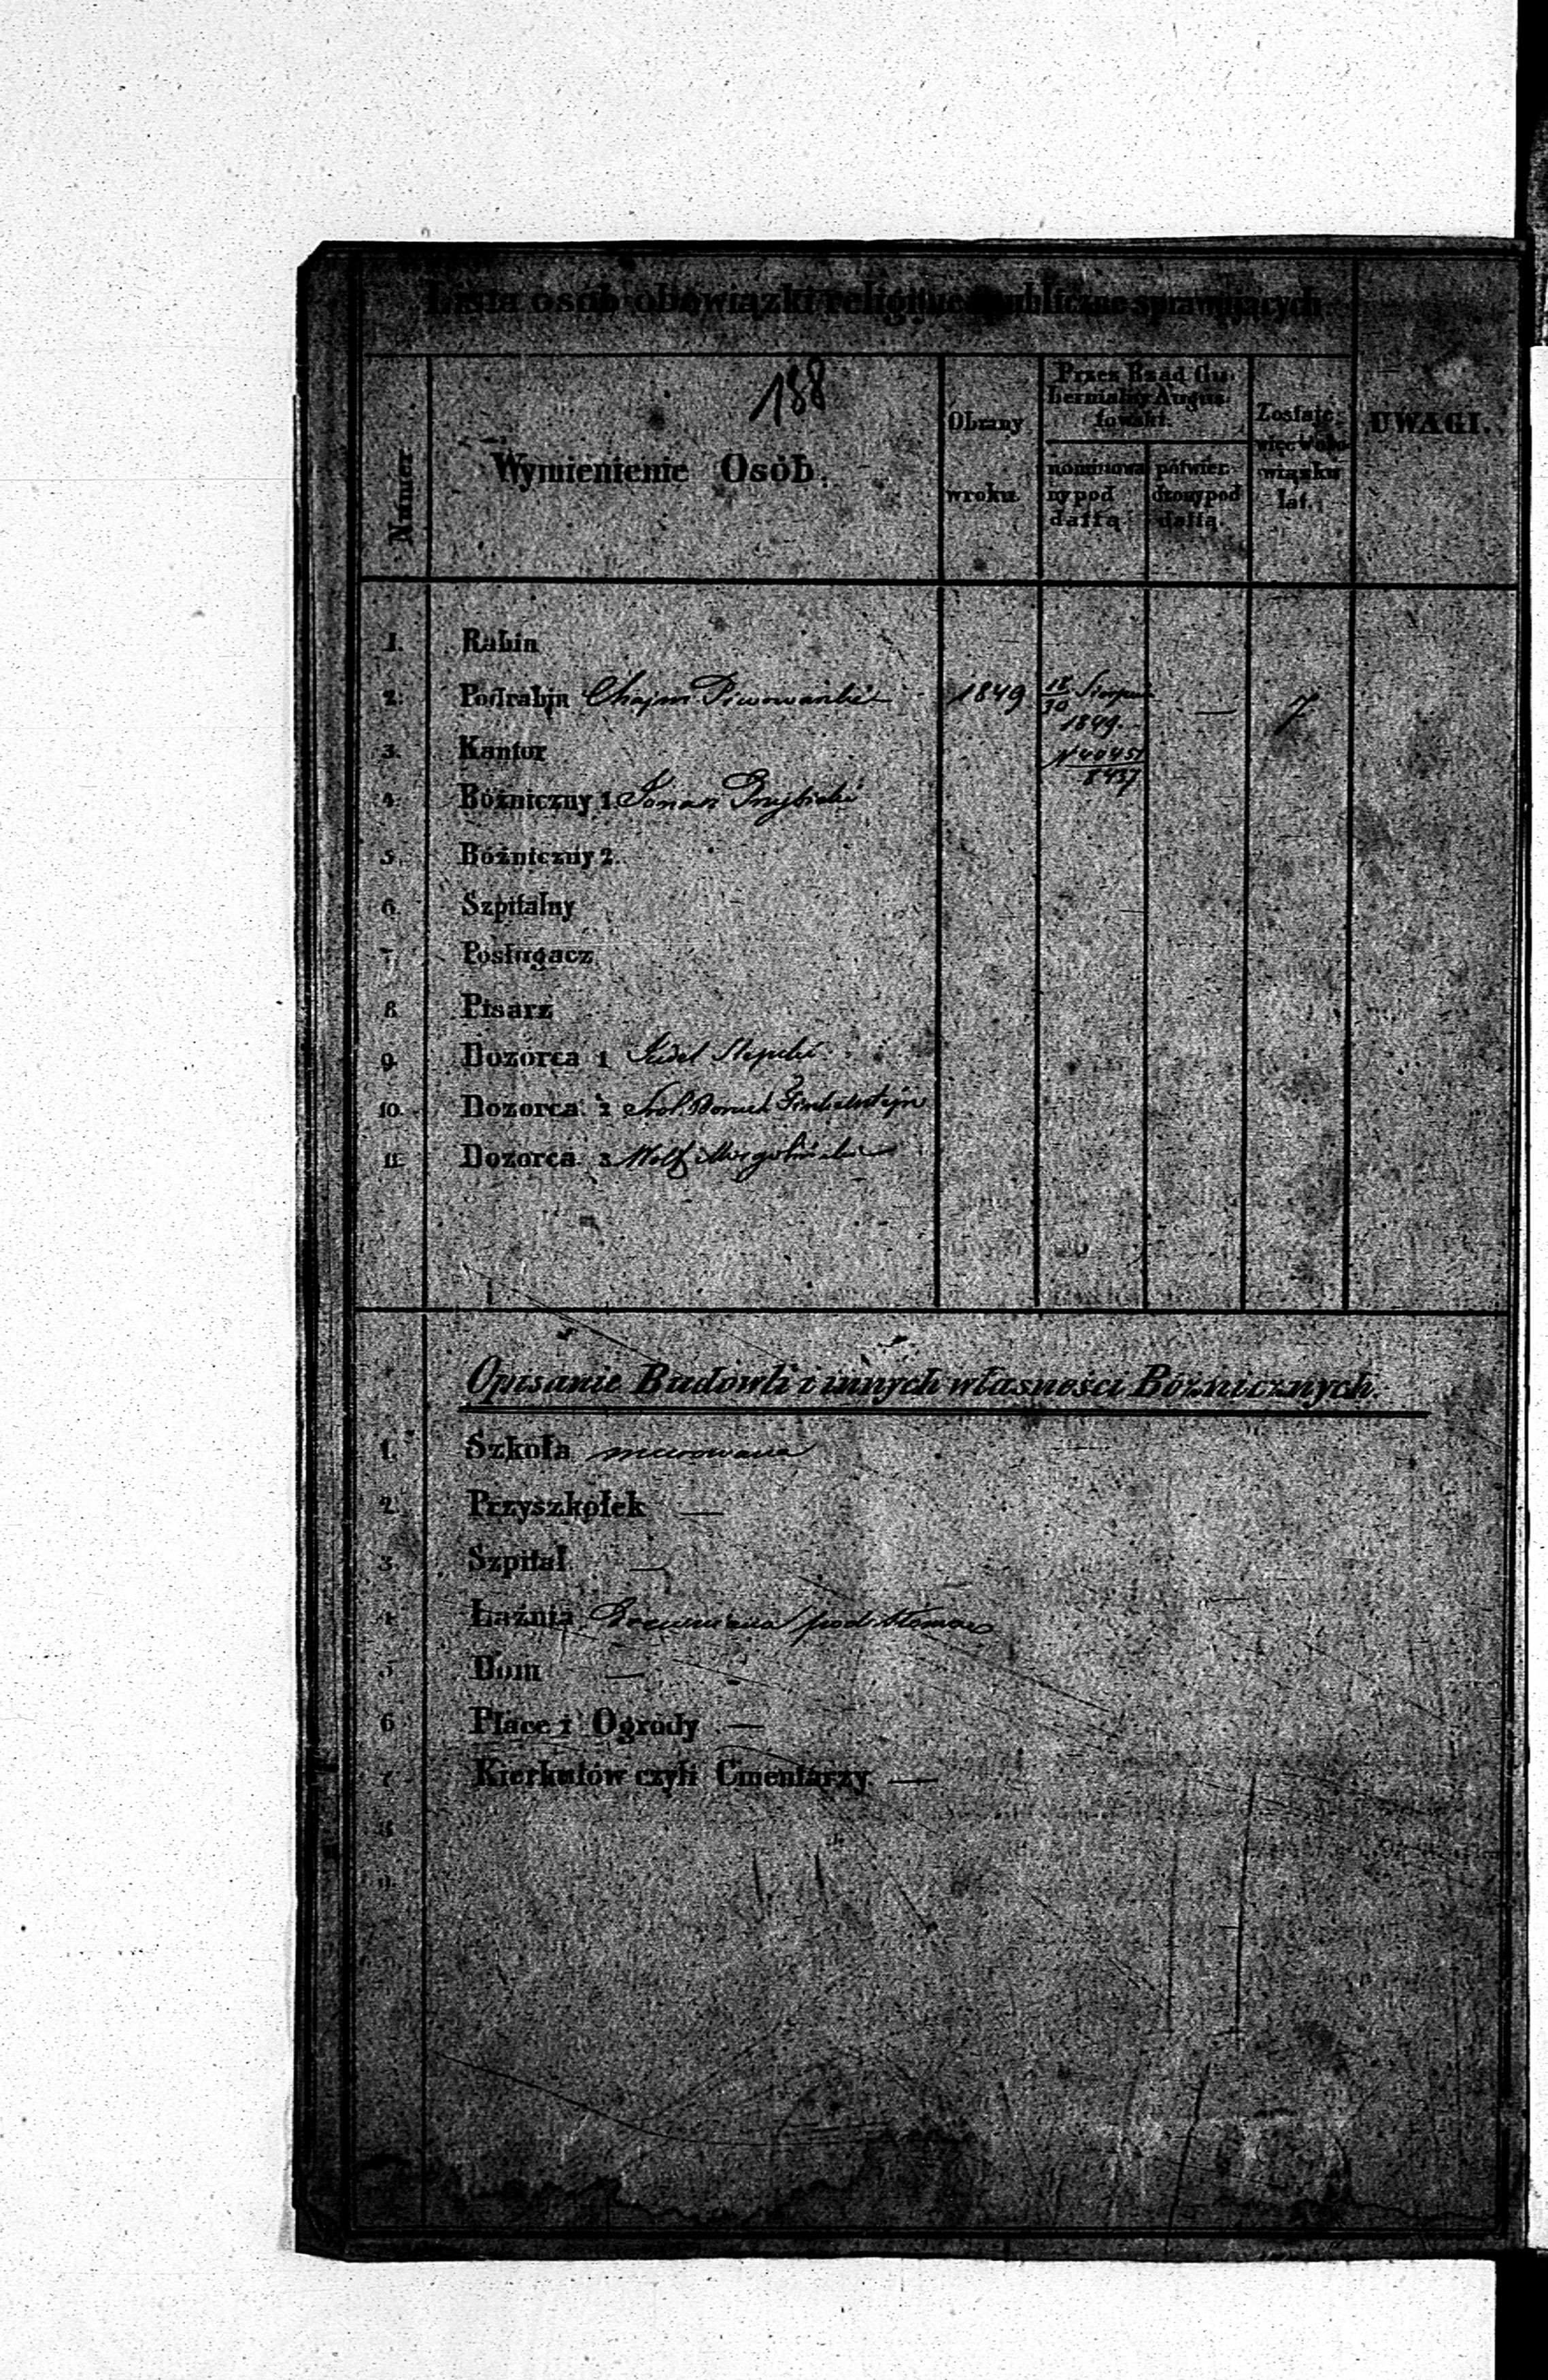 Lista osób obowiązki religijne i publiczne sprawujących
188
Numer
Wymienienie Osób.
Obrany wroku
Przez Rząd Gubernialny Augustowski.
nominowany pod dattą
potwierdzony pod dattą.
Zostaje więc w obowiązku lat.
UWAGI.
1. Rabin
2. Podrabin Chajm Piwowarski 1849 18/30 Sierpnia 1849. N 40451/8437 — 7
3. Kantor
4. Bóżniczny 1.
5. Bóżniczny 2.
6. Szpitalny
7. Posługacz
8. Pisarz
9. Dozorca 1 Judel
10. Dozorca 2 Srol Boruch
11. Dozorca 3 Wolf
Opisanie Budowli i innych własności Bóżnicznych.
1. Szkoła murowana
2. Przyszkołek —
3. Szpital —
4. Łaźnia Drewniana pod
5 Dom —
6 Place i Ogrody —
7 Kierkutów czyli Cmentarzy —
8
9.